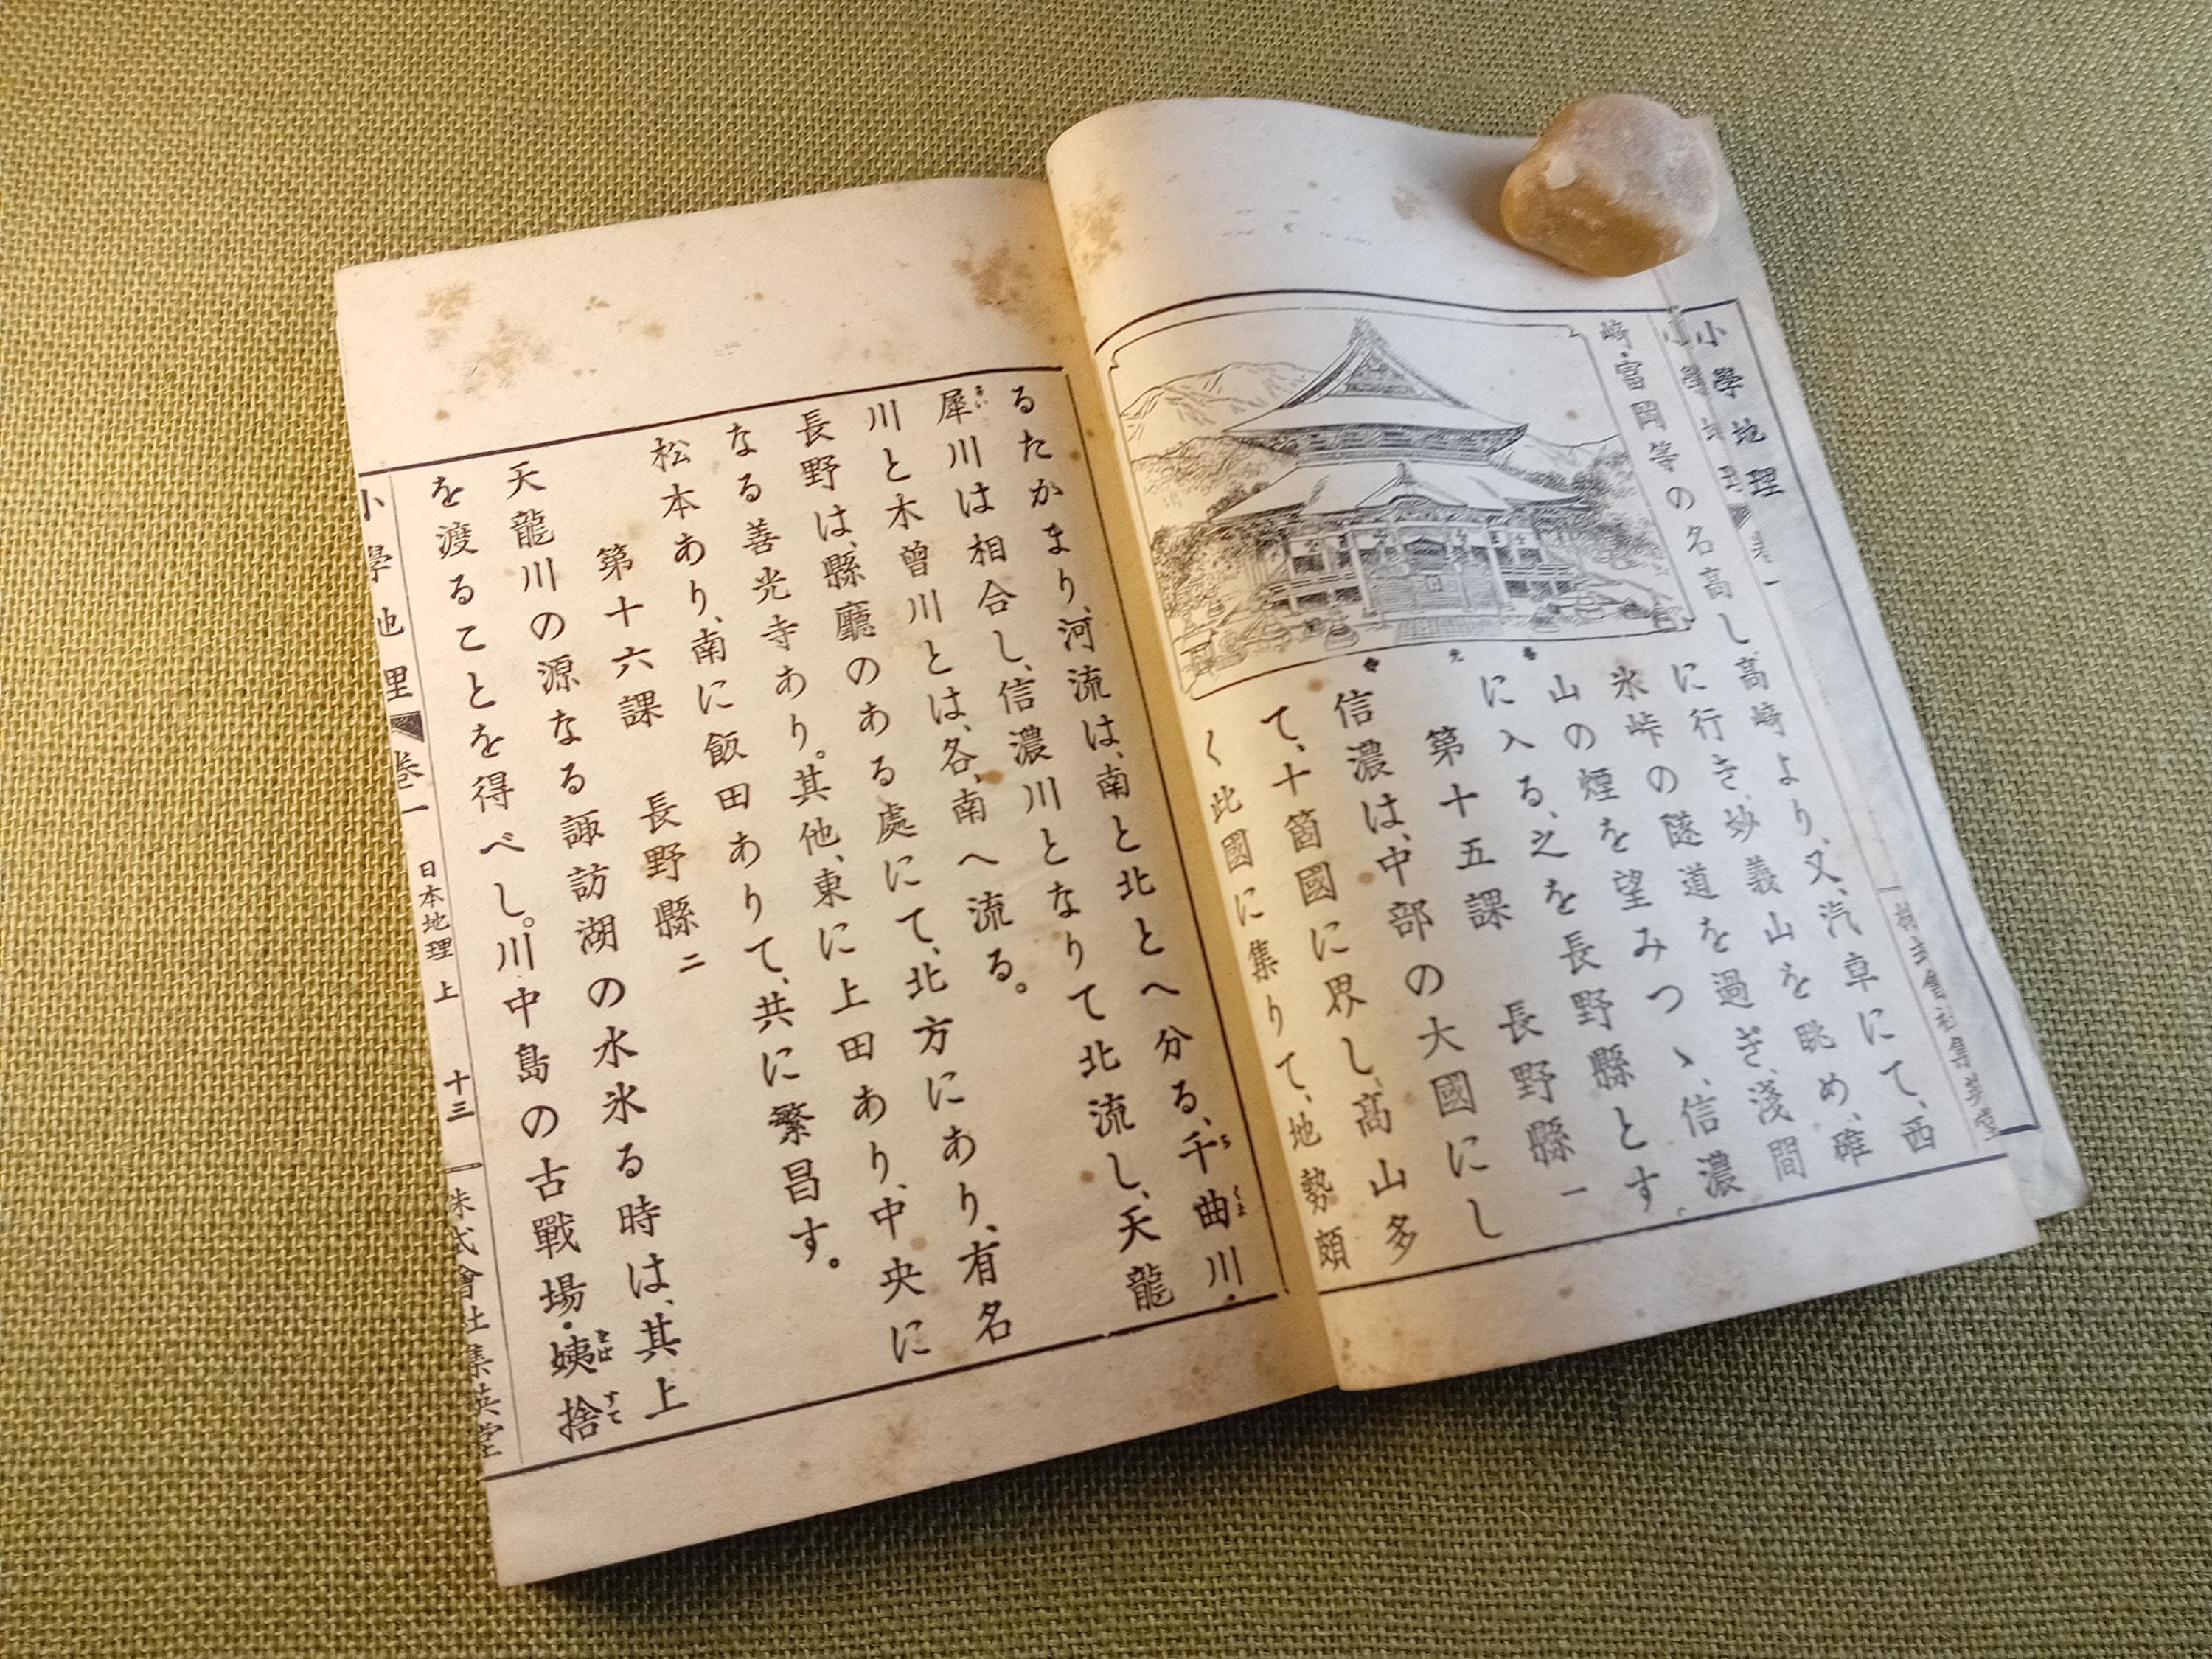 小學地理
崎・富岡等の名高し、高崎より、又、汽車にて、西
に行き、妙義山を眺め、碓
氷峠の隧道を過ぎ、淺間
山の煙を望みつゝ、信濃
に入る、之を長野縣とす。
第十五課 長野縣一
善光寺
信濃は、中部の大國にし
て、十箇國に界し、高山多
く此國に集りて、地勢頗
るたかまり、河流は、南と北とへ分る、千曲川・
ちくま
犀川は相合し、信濃川となりて北流し、天龍
さい
川と木曾川とは、各、南へ流る。
長野は、縣廳のある處にて、北方にあり、有名
なる善光寺あり。其他、東に上田あり、中央に
松本あり、南に飯田ありて、共に繁昌す。
第十六課 長野縣二
天龍川の源なる諏訪湖の水氷る時は、其上
を渡ることを得べし。川中島の古戰場・姨捨
をばすて
小學地理 卷一 日本地理上 十三 株式會社集英堂